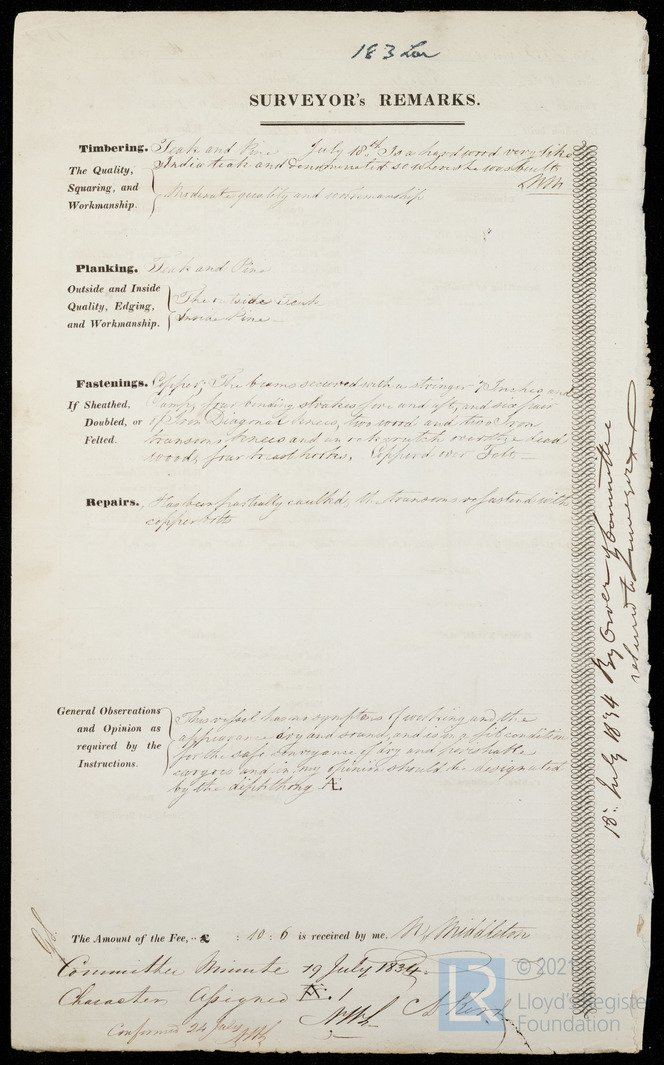 183 Lon
SURVEYOR's REMARKS.
Timbering. Teak and Pine — July 18th Is a hard wood very like
The Quality, India teak and denominated so where she was built
Squaring, and Moderate quality and workmanship
Workmanship.
Planking. Teak and Pine
Outside and Inside
Quality, Edging, The outside Teak
and Workmanship. Inside Pine —
Fastenings. Copper; The beams secured with a stringer 7 Inches and
If Sheathed, Clamp, four binding strakes fore and aft, and six pair
Doubled, or of Iron Diagonal Knees, two wood and two Iron
Felted. transoms Knees and an crutch over the dead
wood, four breasthooks, Copperd over Felt —
Repairs. Has been partially caulked, the transoms refastend with
copper bolts
General Observations This vessel has no symptoms of working and the
and Opinion as appearance dry and sound, and is in a fit condition
required by the for the safe conveyance of dry and perishable
Instructions. cargoes and in my opinion should be designated
by the diphthong Æ.
The Amount of the Fee, ·· £ : 10 : 6 is received by me. Wm Middleton
Committee Minute 19 July 1834
Character Assigned Æ. 1
Confirmed 24 July
18: July 1834 By Order of Committee
referred to Surveyor
© 2021
LR
Lloyd's Register
Foundation